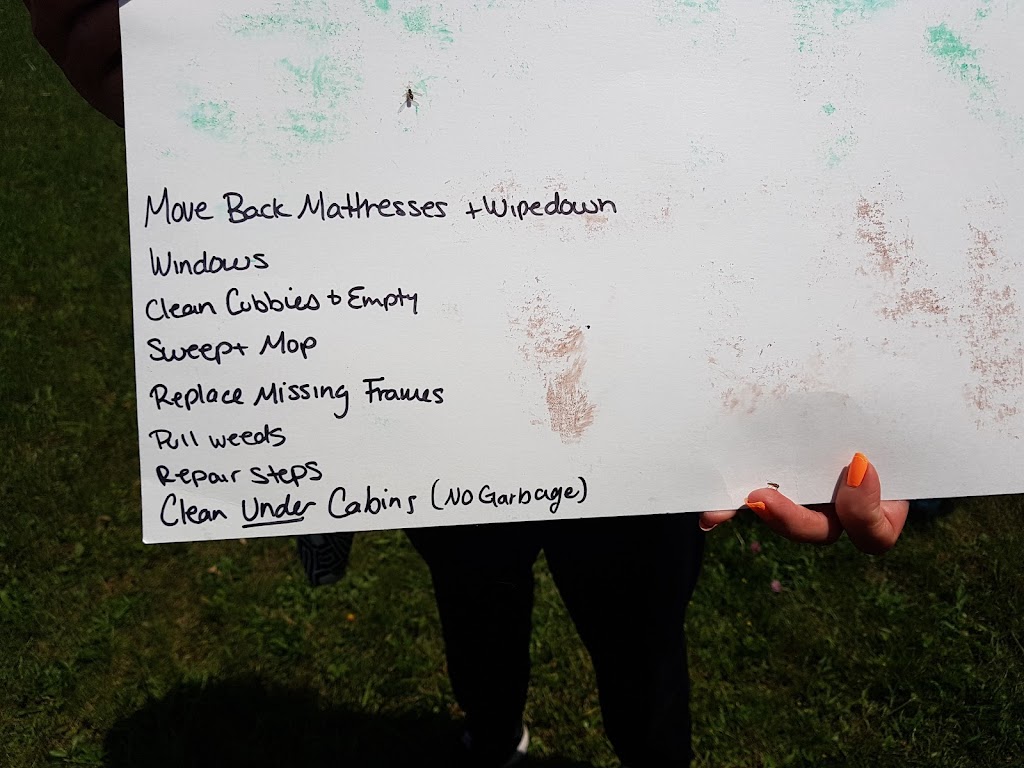 Move Back Mattresses + Wipedown
Windows
Clean Cubbies + Empty
Sweep + Mop
Replace Missing Frames
Pull weeds
Repair Steps
Clean Under Cabins (No Garbage)